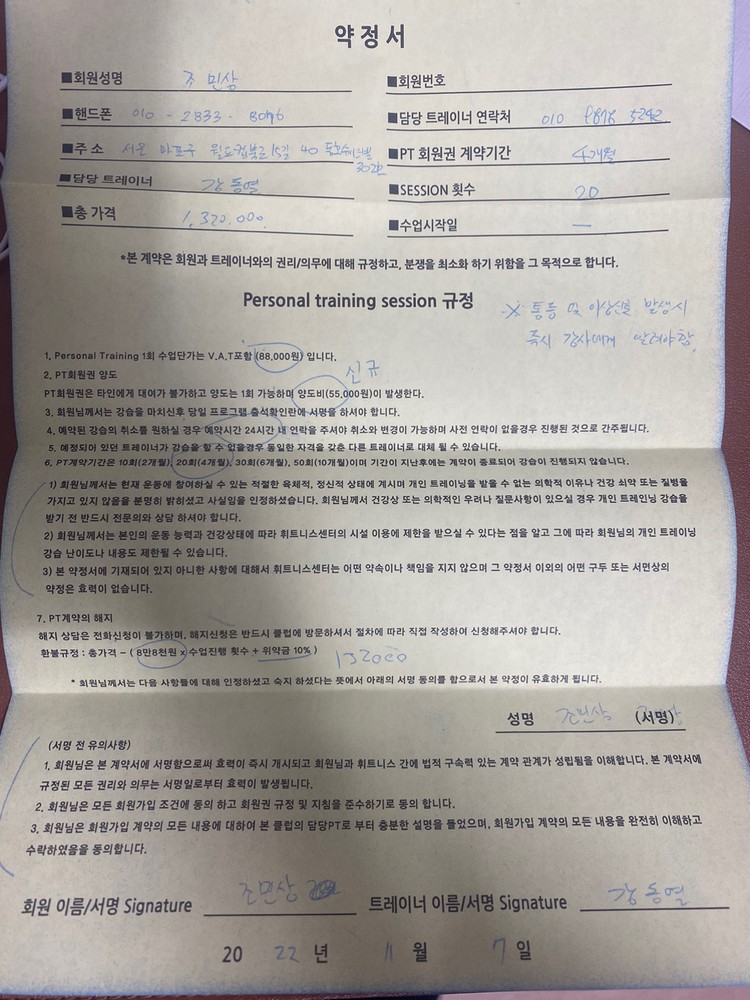 약정서
■회원성명 조민상
■회원번호
■핸드폰 010 - 2833 - 8046
■담당 트레이너 연락처 010 5242
■주 소 서울 마포구 15길 40
302호
■PT 회원권 계약기간 4개월
■담당 트레이너 강동열
■SESSION 횟수 20
■총 가격 1,320,000
■수업시작일 —
*본 계약은 회원과 트레이너와의 권리/의무에 대해 규정하고, 분쟁을 최소화 하기 위함을 그 목적으로 합니다.
Personal training session 규정
※ 통증 및 이상신호 발생시
즉시 강사에게 알려야함.
1. Personal Training 1회 수업단가는 V.A.T포함 (88,000원) 입니다.
신규
2. PT회원권 양도
PT회원권은 타인에게 대여가 불가하고 양도는 1회 가능하며 양도비(55,000원)이 발생한다.
3. 회원님께서는 강습을 마치신후 당일 프로그램 출석확인란에 서명을 하셔야 합니다.
4. 예약된 강습의 취소를 원하실 경우 예약시간 24시간 내 연락을 주셔야 취소와 변경이 가능하며 사전 연락이 없을경우 진행된 것으로 간주됩니다.
5. 예정되어 있던 트레이너가 강습을 할 수 없을경우 동일한 자격을 갖춘 다른 트레이너로 대체 될 수 있습니다.
6. PT계약기간은 10회(2개월), 20회(4개월), 30회(6개월), 50회(10개월)이며 기간이 지난후에는 계약이 종료되어 강습이 진행되지 않습니다.
1) 회원님께서는 현재 운동에 참여하실 수 있는 적절한 육체적, 정신적 상태에 계시며 개인 트레이닝을 받을 수 없는 의학적 이유나 건강 쇠약 또는 질병을
가지고 있지 않음을 분명히 밝히셨고 사실임을 인정하셨습니다. 회원님께서 건강상 또는 의학적인 우려나 질문사항이 있으실 경우 개인 트레인닝 강습을
받기 전 반드시 전문의와 상담 하셔야 합니다.
2) 회원님께서는 본인의 운동 능력과 건강상태에 따라 휘트니스센터의 시설 이용에 제한을 받으실 수 있다는 점을 알고 그에 따라 회원님의 개인 트레이닝
강습 난이도나 내용도 제한될 수 있습니다.
3) 본 약정서에 기재되어 있지 아니한 사항에 대해서 휘트니스센터는 어떤 약속이나 책임을 지지 않으며 그 약정서 이외의 어떤 구두 또는 서면상의
약정은 효력이 없습니다.
7. PT계약의 해지
해지 상담은 전화신청이 불가하며, 해지신청은 반드시 클럽에 방문하셔서 절차에 따라 직접 작성하여 신청해주셔야 합니다.
환불규정 : 총가격 – ( 8만8천원 x 수업진행 횟수 + 위약금 10% ) 132000
* 회원님께서는 다음 사항들에 대해 인정하셨고 숙지 하셨다는 뜻에서 아래의 서명 동의를 함으로서 본 약정이 유효하게 됩니다.
성명 조민상 (서명)
(서명 전 유의사항)
1. 회원님은 본 계약서에 서명함으로써 효력이 즉시 개시되고 회원님과 휘트니스 간에 법적 구속력 있는 계약 관계가 성립됨을 이해합니다. 본 계약서에
규정된 모든 권리와 의무는 서명일로부터 효력이 발생됩니다.
2. 회원님은 모든 회원가입 조건에 동의 하고 회원권 규정 및 지침을 준수하기로 동의 합니다.
3. 회원님은 회원가입 계약의 모든 내용에 대하여 본 클럽의 담당PT로 부터 충분한 설명을 들었으며, 회원가입 계약의 모든 내용을 완전히 이해하고
수락하였음을 동의합니다.
회원 이름/서명 Signature 조민상
트레이너 이름/서명 Signature 강동열
20 22 년 11 월 7 일